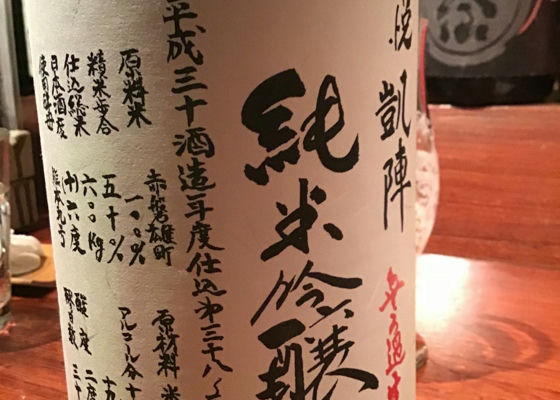 悦 凱陣
純米吟醸
無過
平成三十酒造年度仕込第三十八
原料米 赤磐雄町 原材料 米
精米歩合
一〇〇%
仕込総米 五十% アルコール分十
日本酒度 六〇〇kg 酸度 二度
使用酵母 (+)六度
熊本九号